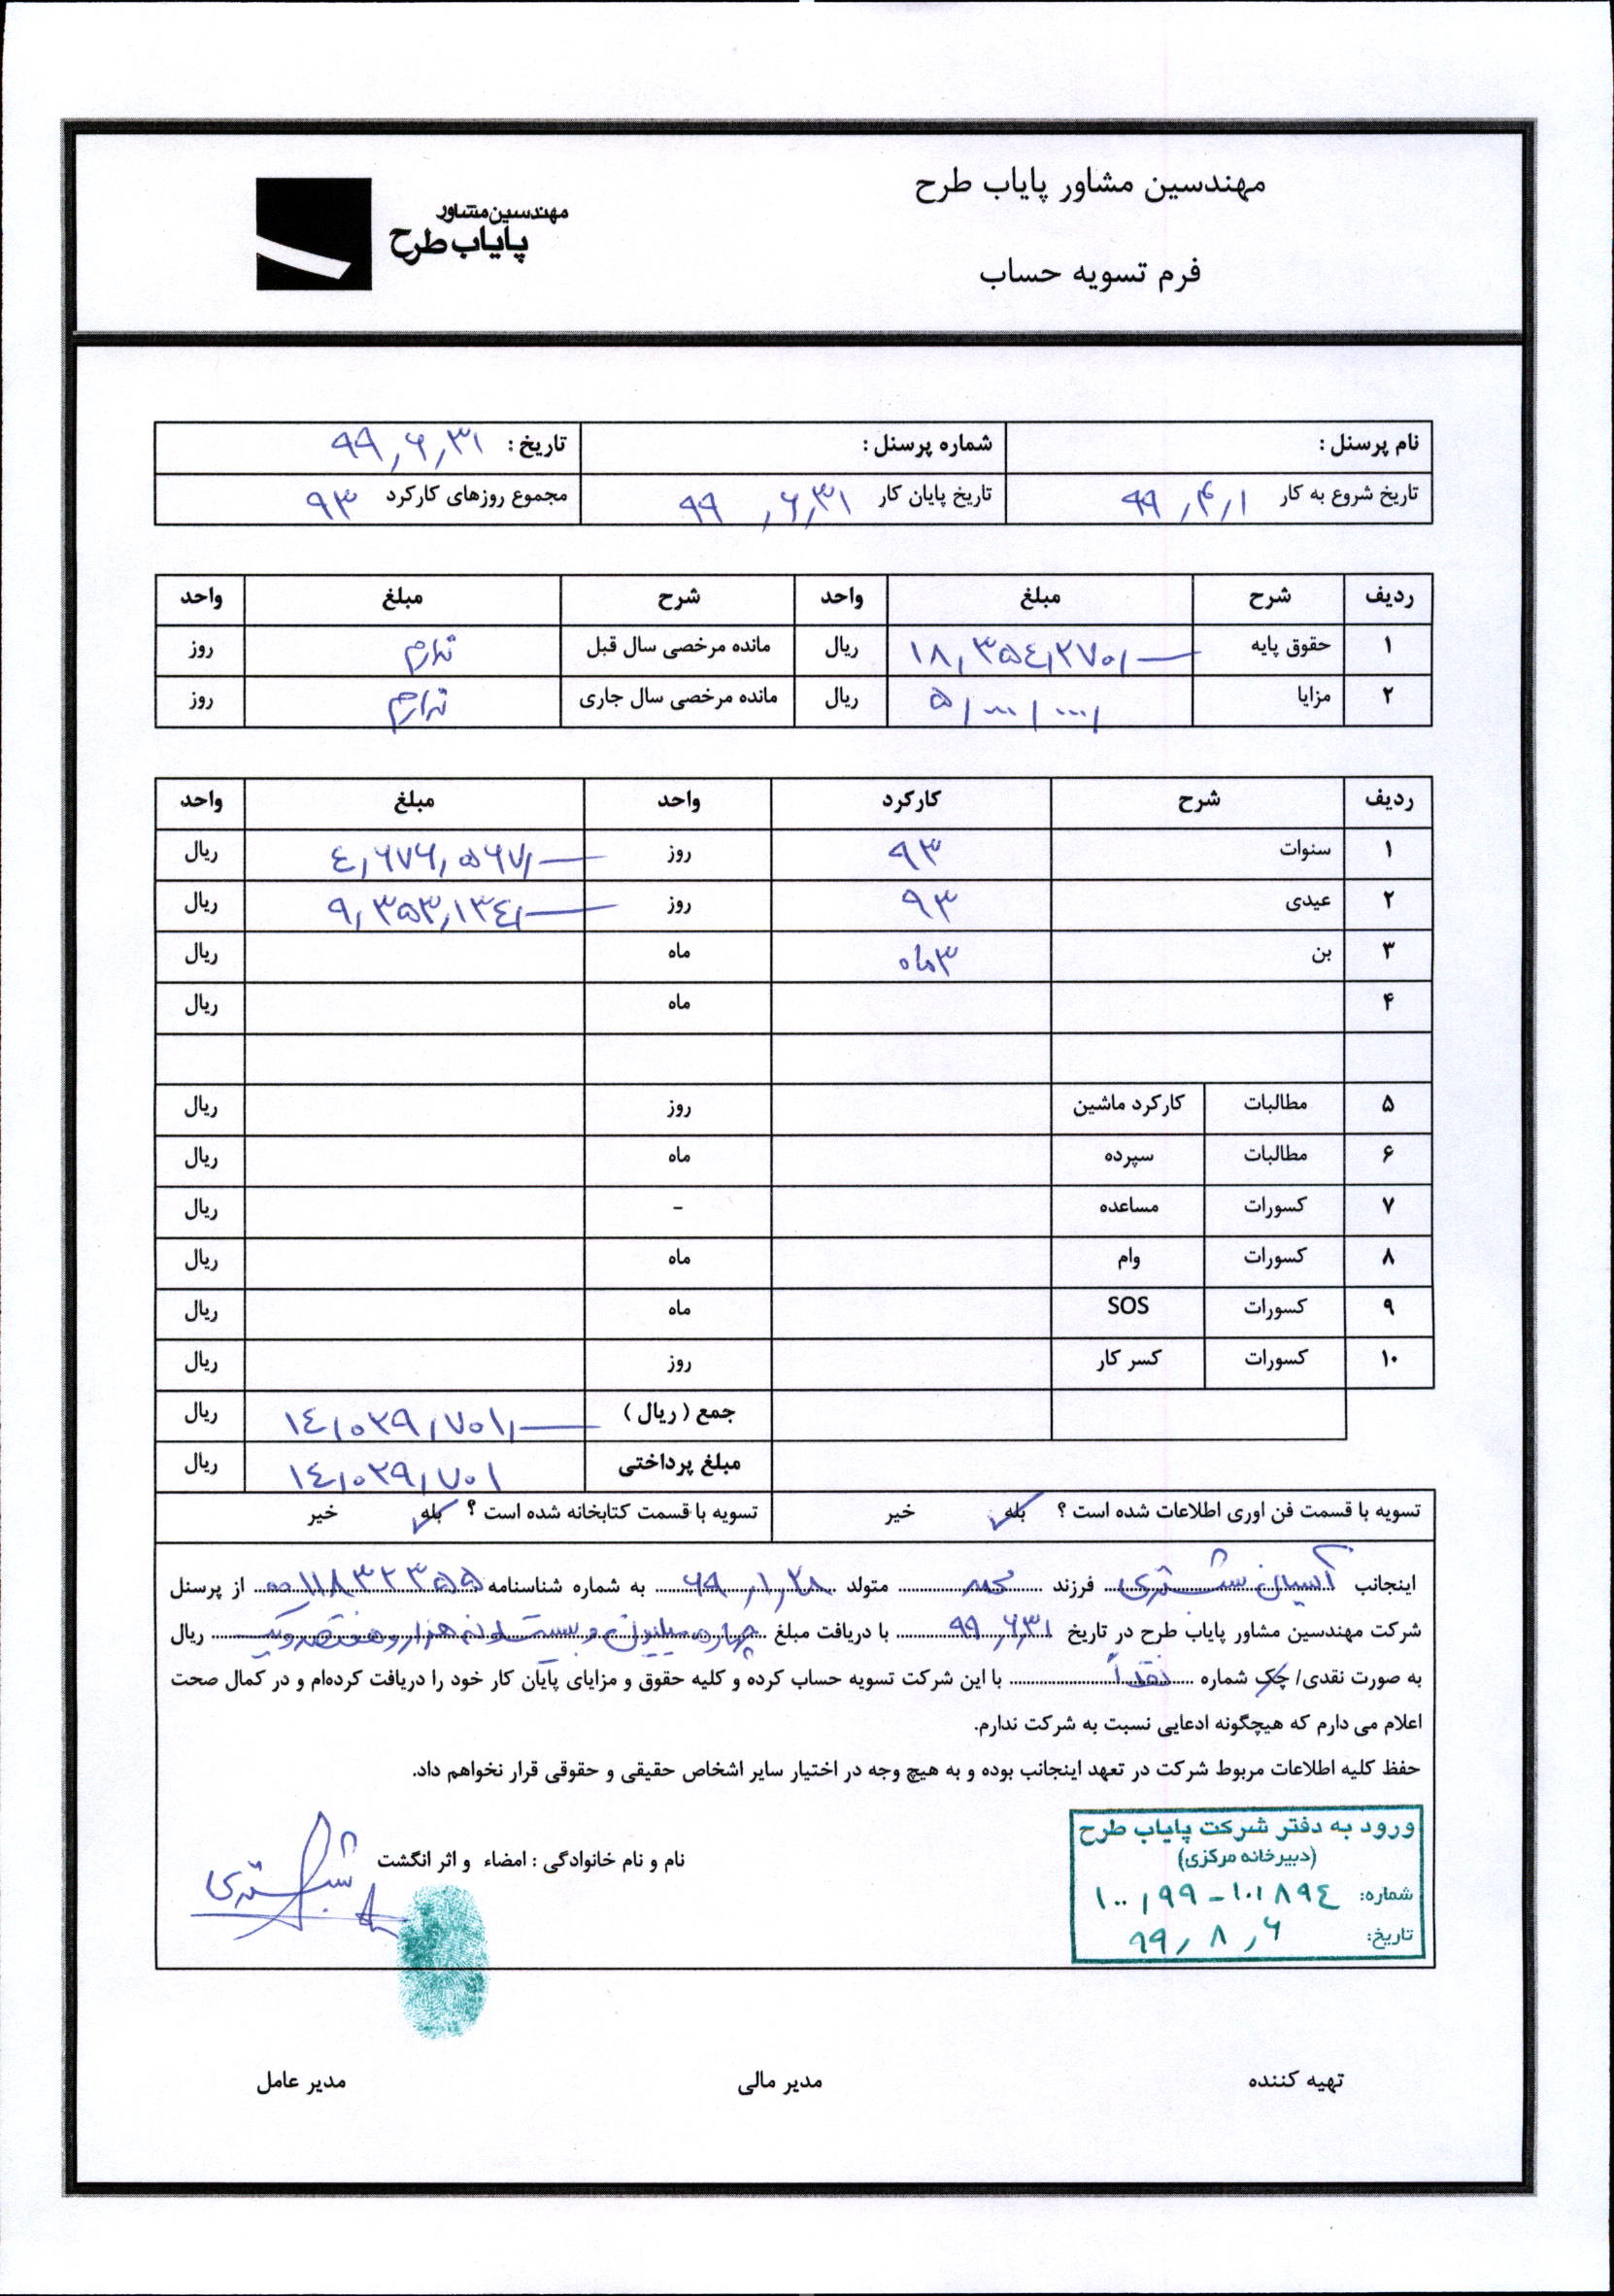 مهندسین مشاور پایاب طرح
مهندسین مشاور
پایاب طرح
فرم تسویه حساب
نام پرسنل : شماره پرسنل : تاریخ : ۹۹,۶,۳۱
تاریخ شروع به کار ۹۹,۴,۱ تاریخ پایان کار ۹۹,۶,۳۱ مجموع روزهای کارکرد ۹۳
ردیف شرح مبلغ واحد شرح مبلغ واحد
۱ حقوق پایه ۱۸,۳۵۴,۲۷۰,— ریال مانده مرخصی سال قبل ندارم روز
۲ مزایا ۵,۰۰۰,۰۰۰, ریال مانده مرخصی سال جاری ندارم روز
ردیف شرح کارکرد واحد مبلغ واحد
۱ سنوات ۹۳ روز ۴,۶۷۶,۵۶۷,— ریال
۲ عیدی ۹۳ روز ۹,۳۵۳,۱۳۴,— ریال
۳ بن ۳ماه ماه ریال
۴ ماه ریال
۵ مطالبات کارکرد ماشین روز ریال
۶ مطالبات سپرده ماه ریال
۷ کسورات مساعده - ریال
۸ کسورات وام ماه ریال
۹ کسورات SOS ماه ریال
۱۰ کسورات کسر کار روز ریال
جمع ( ریال ) ۱۴,۰۲۹,۷۰۱,— ریال
مبلغ پرداختی ۱۴,۰۲۹,۷۰۱ ریال
تسویه با قسمت فن اوری اطلاعات شده است ؟ بله خیر تسویه با قسمت کتابخانه شده است ؟ بله خیر
اینجانب شبستری فرزند محمد متولد ۶۹,۱,۲۸ به شماره شناسنامه ۰۰۱۱۸۳۲۳۵۵ از پرسنل
شرکت مهندسین مشاور پایاب طرح در تاریخ ۹۹,۶,۳۱ با دریافت مبلغ چهارده میلیون و بیست و نه هزار و هفتصد و یک ریال
به صورت نقدی/ چک شماره نقداً با این شرکت تسویه حساب کرده و کلیه حقوق و مزایای پایان کار خود را دریافت کرده‌ام و در کمال صحت
اعلام می دارم که هیچگونه ادعایی نسبت به شرکت ندارم.
حفظ کلیه اطلاعات مربوط شرکت در تعهد اینجانب بوده و به هیچ وجه در اختیار سایر اشخاص حقیقی و حقوقی قرار نخواهم داد.
ورود به دفتر شرکت پایاب طرح
(دبیرخانه مرکزی)
شماره: ۱۰۰,۹۹-۱۰۱۸۹۴
تاریخ: ۹۹,۸,۶
نام و نام خانوادگی : امضاء و اثر انگشت
شبستری
تهیه کننده مدیر مالی مدیر عامل